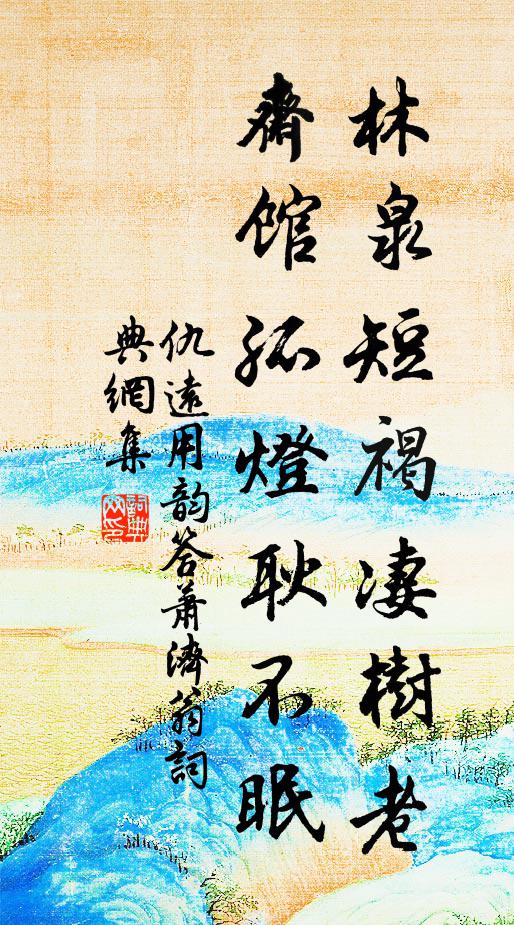 林泉短褐凄樹老
齋馆孤燈耿不眠
仇遠用韵答蕭濟翁詞
典網集
詞典